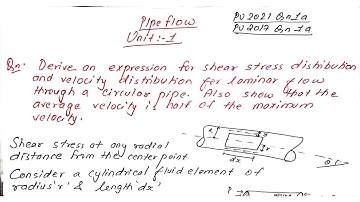 Pipe flow
Unit :- 1
PU 2021 Qn 1a
PU 2017 Qn-1a
Qn: Derive an expression for shear stress distribution
and velocity distribution for laminar flow
through a circular pipe. Also show that the
average velocity is half of the maximum
velocity.
Shear stress at any radial
distance from the center point
Consider a cylindrical fluid element of
radius 'r' & length 'dx'
dx